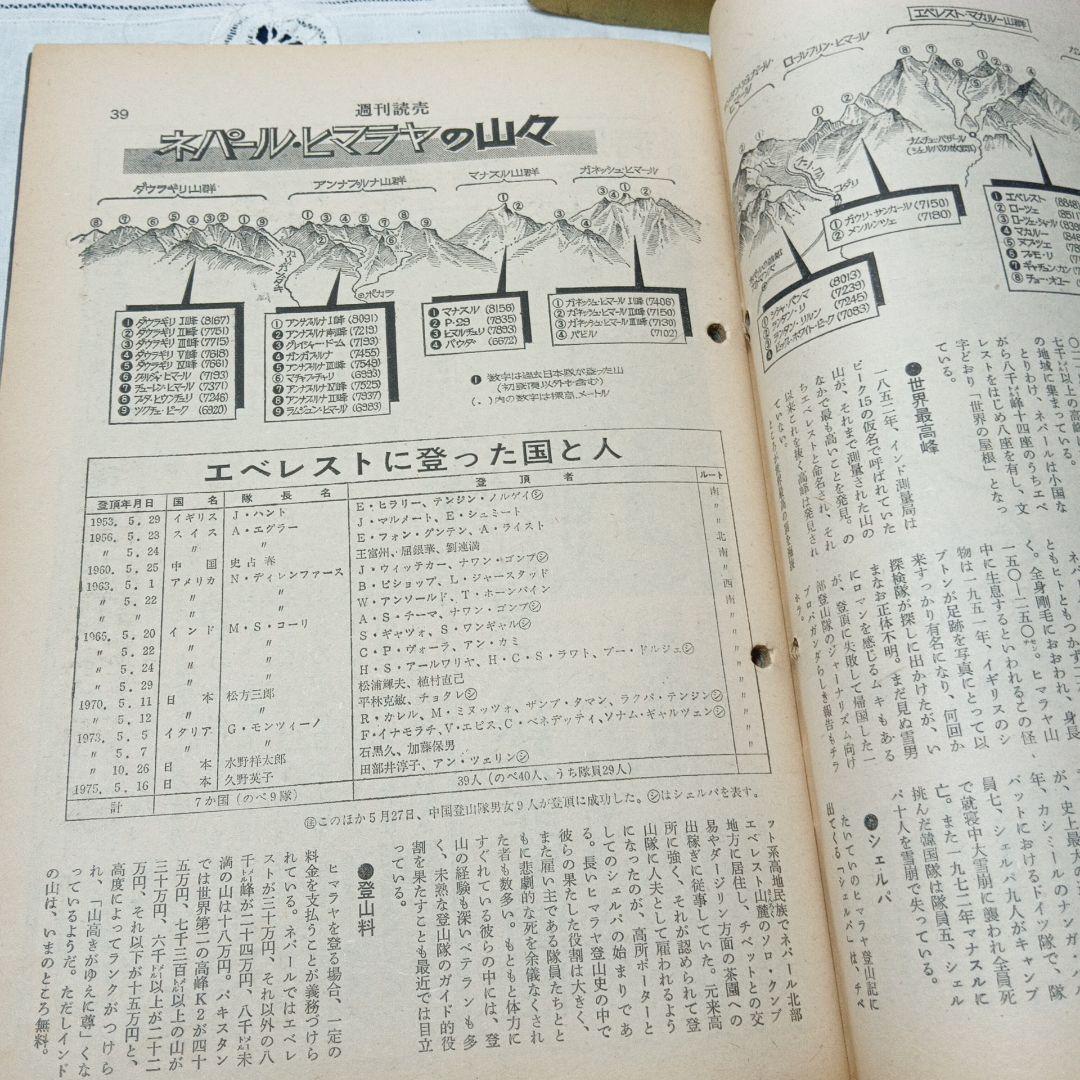 39
週刊読売
ネパール・ヒマラヤの山々
ダウラギリ山群
アンナプルナ山群
マナスル山群
ガネッシュ・ヒマール
カリガンダキ
ポカラ
❶ダウラギリⅠ峰(8167)
❷ダウラギリⅡ峰(7751)
❸ダウラギリⅢ峰(7715)
❹ダウラギリⅤ峰(7618)
❺ダウラギリⅣ峰(7661)
❻グルジャ・ヒマール(7193)
❼チューレン・ヒマール(7371)
❽プタ・ヒウンチュリ(7246)
❾ツクチェ・ピーク(6920)
①アンナプルナⅠ峰(8091)
②アンナプルナ南峰(7219)
❸グレイシャー・ドーム(7193)
❹ガンガプルナ(7455)
❺アンナプルナⅢ峰(7549)
⑥マチャプチャリ(6993)
❼アンナプルナⅣ峰(7525)
❽アンナプルナⅡ峰(7937)
❾ラムジュン・ヒマール(6983)
❶マナスル(8156)
❷P・29(7835)
❸ヒマルチュリ(7893)
❹バウダ(6672)
①ガネッシュ・ヒマールⅠ峰(7406)
②ガネッシュ・ヒマールⅡ峰(7150)
③ガネッシュ・ヒマールⅢ峰(7130)
④パビル(7102)
❶数字は過去日本隊が登った山
(初登頂以外も含む)
( )内の数字は標高、メートル
エベレストに登った国と人
登頂年月日 国名 隊長名 登頂者 ルート
1953. 5. 29 イギリス J・ハント E・ヒラリー、テンジン・ノルゲイ㋛ 南
1956. 5. 23 スイス A・エグラー J・マルメート、E・シュミート 〃
〃 5. 24 〃 〃 E・フォン・グンテン、A・ライスト 〃
1960. 5. 25 中国 史占春 王富州、屈銀華、劉連満 北
1963. 5. 1 アメリカ N・ディレンファース J・ウィッテカー、ナワン・ゴンブ㋛ 南
〃 5. 22 〃 〃 B・ビショップ、L・ジャースタッド 〃
〃 〃 〃 〃 W・アンソールド、T・ホーンバイン 西
1965. 5. 20 インド M・S・コーリ A・S・チーマ、ナワン・ゴンブ㋛ 南
〃 5. 22 〃 〃 S・ギャツォ、S・ワンギャル㋛ 〃
〃 5. 24 〃 〃 C・P・ヴォーラ、アン・カミ 〃
〃 5. 29 〃 〃 H・S・アールワリヤ、H・C・S・ラワト、プー・ドルジェ㋛ 〃
1970. 5. 11 日本 松方三郎 松浦輝夫、植村直己 〃
〃 5. 12 〃 〃 平林克敏、チョタレ㋛ 〃
1973. 5. 5 イタリア G・モンツィーノ R・カレル、M・ミヌッツォ、ザンブ・タマン、ラクパ・テンジン㋛ 〃
〃 5. 7 〃 〃 F・イナモラチ、V・エピス、C・ベネデッティ、ソナム・ギャルツェン㋛ 〃
〃 10. 26 日本 水野祥太郎 石黒久、加藤保男 〃
1975. 5. 16 日本 久野英子 田部井淳子、アン・ツェリン㋛ 〃
計 7か国(のべ9隊) 39人(のべ40人、うち隊員29人)
㊟このほか5月27日、中国登山隊男女9人が登頂に成功した。㋛はシェルパを表す。
ット系高地民族でネパール北部
エベレスト山麓のソロ・クンブ
地方に居住し、チベットとの交
易やダージリン方面の茶園への
出稼ぎに従事していた。元来高
所に強く、それが認められて登
山隊に人夫として雇われるよう
になったのが、高所ポーターと
してのシェルパの始まりであ
る。長いヒマラヤ登山史の中で
彼らの果たした役割は大きく、
また雇い主である隊員たちとと
もに悲劇的な死を余儀なくされ
た者も数多い。もともと体力に
すぐれている彼らの中には、登
山の経験も深いベテランも多
く、未熟な登山隊のガイド的役
割を果たすことも最近では目立
っている。
●登山料
ヒマラヤを登る場合、一定の
料金を支払うことが義務づけら
れている。ネパールではエベレ
ストが三十万円、それ以外の八
千㍍峰が二十四万円、八千㍍未
満の山は十八万円。パキスタン
では世界第二の高峰K2が四十
五万円、七千三百㍍以上の山が
三十万円、六千㍍以上が二十二
万円、それ以下が十五万円と、
高度によってランクがつけら
れ、「山高きがゆえに尊」くな
っているようだ。ただしインド
の山は、いまのところ無料。
エベレスト・マカルー山群
ロールワリン・ヒマール
ナムチェ・バザール
(シェルパの故郷)
コダリ
①ガウリ・サンカール(7150)
②メンルンツェ(7180)
❶エベレスト(8848)
②ローツェ
③ローツェ・シャール
❹マカルー
⑤ヌプツェ
⑥プモ・リ
❼ギャチュン・カン
⑧チョー・オユー
シシャ・パンマ(8013)
ランタン・リ(7239)
ランタン・リルン(7245)
ビッグ・ホワイト・ピーク(7083)
七千㍍以上の高峰
の地域に集まっている。
とりわけ、ネパールは小国な
がら八千㍍峰十四座のうちエベ
レストをはじめ八座を有し、文
字どおり「世界の屋根」となっ
ている。
●世界最高峰
一八五二年、インド測量局は
ピーク15の仮名で呼ばれていた
山が、それまで測量された山の
なかで最も高いことを発見。の
ちエベレストと命名され、それ
以来これを抜く高峰は発見され
ていない。
ともヒトともつかず、身長
く。全身剛毛におおわれ、身長
一五〇-二五〇㌢。ヒマラヤ山
中に生息するといわれるこの怪
物は一九五一年、イギリスのシ
プトンが足跡を写真にとって以
来すっかり有名になり、何回か
探検隊が探しに出かけたが、い
まなお正体不明。まだ見ぬ雪男
にロマンを感じるムキもある
が、登頂に失敗して帰国した一
部登山隊のジャーナリズム向け
プロパガンダらしき報告もチラ
ホラ。
が、史上最大の
年、カシミールのナンガ・
パットにおけるドイツ隊で、隊
員七、シェルパ九人がキャンプ
で就寝中大雪崩に襲われ全員死
亡。また一九七二年マナスルに
挑んだ韓国隊は隊員五、シェル
パ十人を雪崩で失っている。
●シェルパ
たいていのヒマラヤ登山記に
出てくる「シェルパ」は、チベ